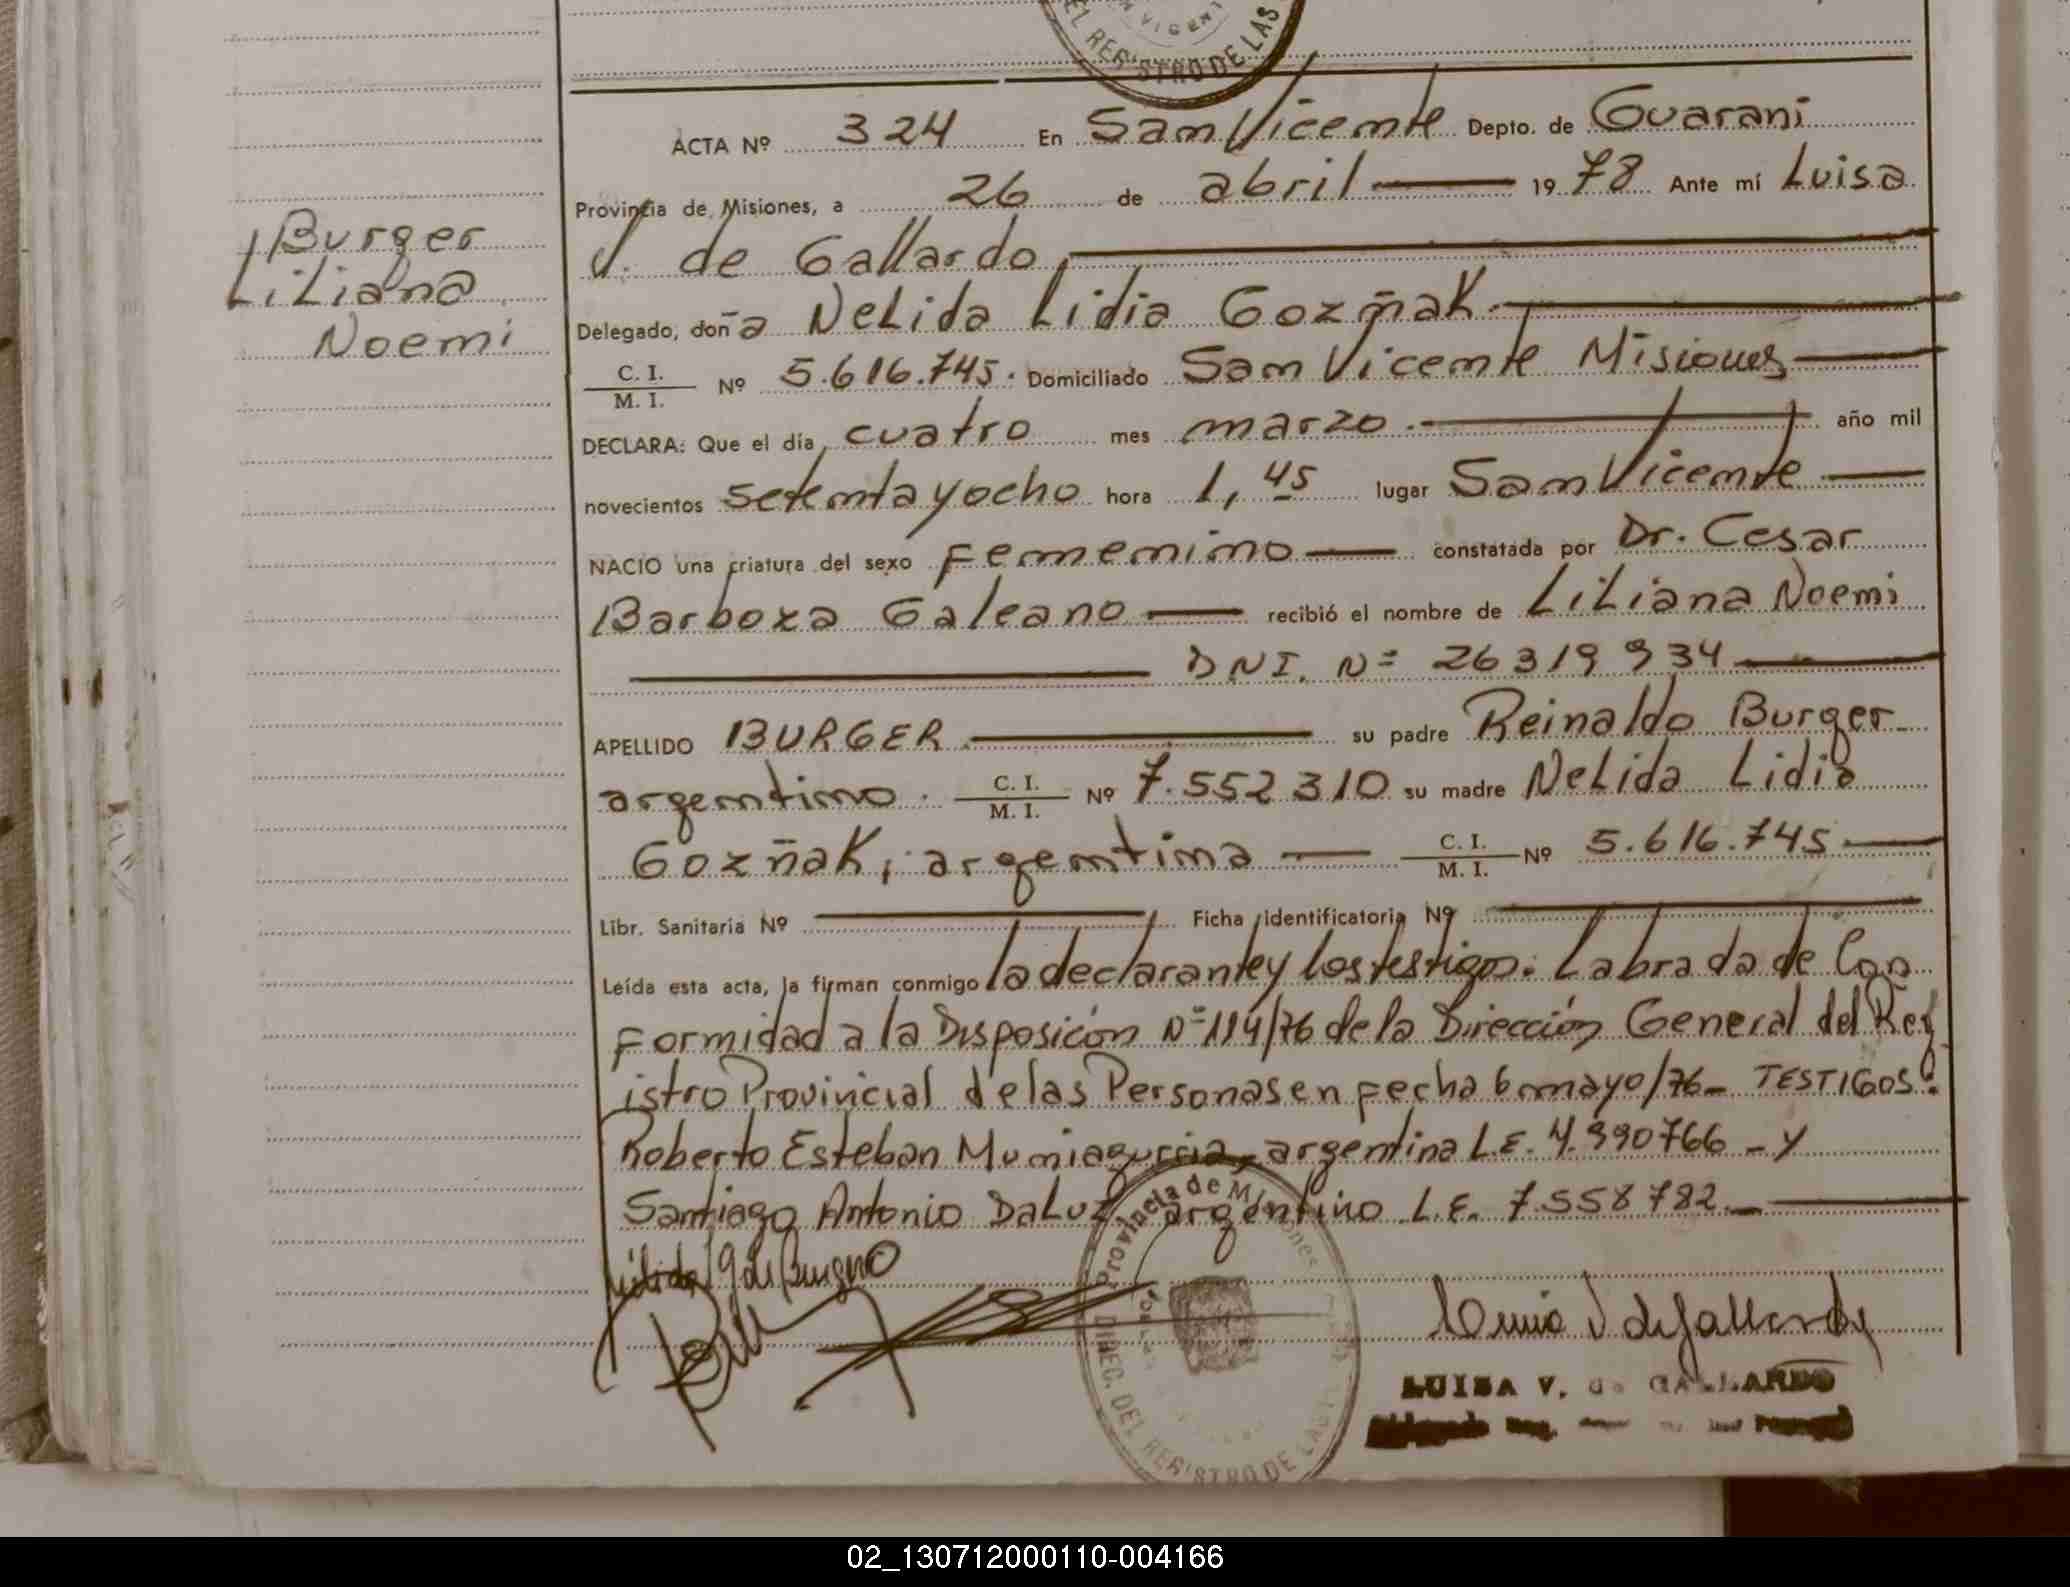 N VICENT
EL REGISTRO DE LAS
ACTA Nº 324 En San Vicente Depto. de Guarani
Provincia de Misiones, a 26 de abril 19 78 Ante mí Luisa
V. de Gallardo
Delegado, doña Nelida Lidia Gozñak
C. I.
M. I. Nº 5.616.745. Domiciliado San Vicente Misiones
DECLARA: Que el día, cuatro mes marzo. año mil
novecientos setenta y ocho hora 1,45 lugar San Vicente
NACIO una criatura del sexo femenino constatada por Dr. Cesar
Barboza Galeano recibió el nombre de Liliana Noemi
DNI. Nº 26319934
APELLIDO BURGER su padre Reinaldo Burger
argentino. C. I.
M. I. Nº 7.552310 su madre Nelida Lidia
Gozñak, argentina C. I.
M. I. Nº 5.616.745
Libr. Sanitaria Nº Ficha identificatoria Nº
Leída esta acta, la firman conmigo la declarante y los testigos. Labrada de Con
formidad a la Disposición Nº 114/76 de la Dirección General del Reg
istro Provincial de las Personas en fecha 6 mayo/76 - TESTIGOS:
Roberto Esteban Muniagurria, argentina L.E. 4.990766 - y
Santiago Antonio DaLuz argentino L.E. 7.558782
Burger
Liliana
Noemi
Provincia de Misiones
DIREC. DEL REGISTRO DE LAS
V de Gallardo
LUISA V. de GALLARDO
02_130712000110-004166